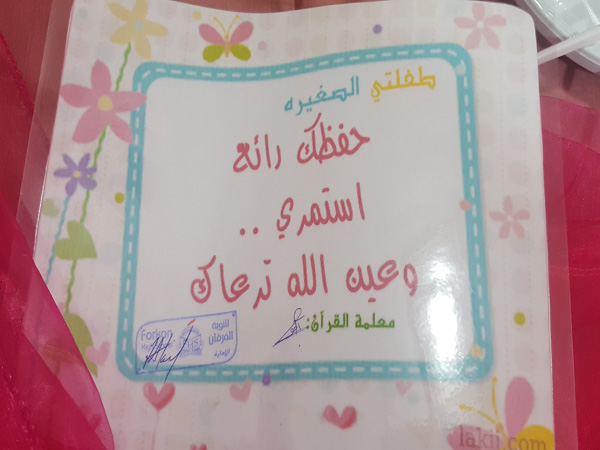 طفلتي الصغيره
حفظك رائع
استمري ..
وعين الله ترعاك
معلمة القرآن:
Forkan
ثانوية
الفرقان
الأهلية
lakii.com